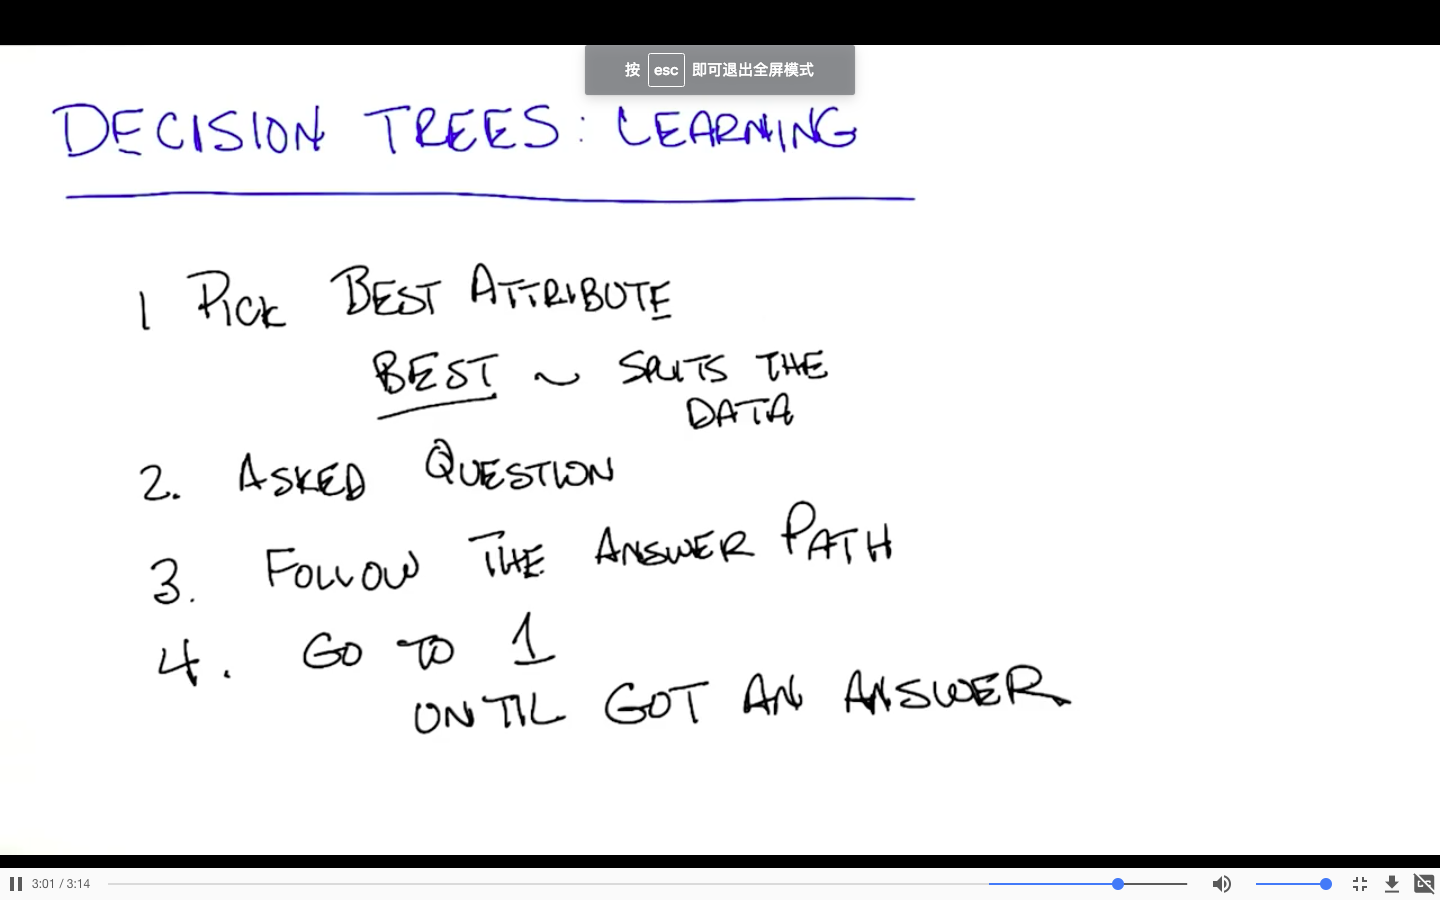 按 esc 即可退出全屏模式
DECISION TREES: LEARNING
1 PICK BEST ATTRIBUTE
BEST ~ SPLITS THE
DATA
2. ASKED QUESTION
3. FOLLOW THE ANSWER PATH
4. GO TO 1
UNTIL GOT AN ANSWER
3:01 / 3:14